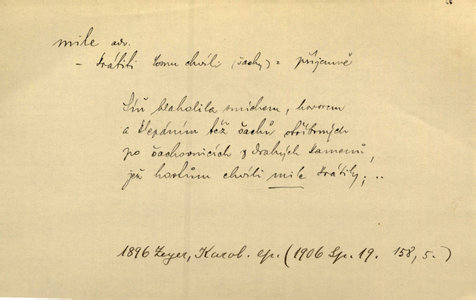 mile adv.
– krátiti komu chvíli (šachy) = příjemně
Síň hlaholila smíchem, hovorem
a klepáním též šachů stříbrných
po šachovnicích z drahých kamenů,
jež hostům chvíli mile krátily; ..
1896 Zeyer, Karol. ep. (1906 Sp. 19. 158, 5.)